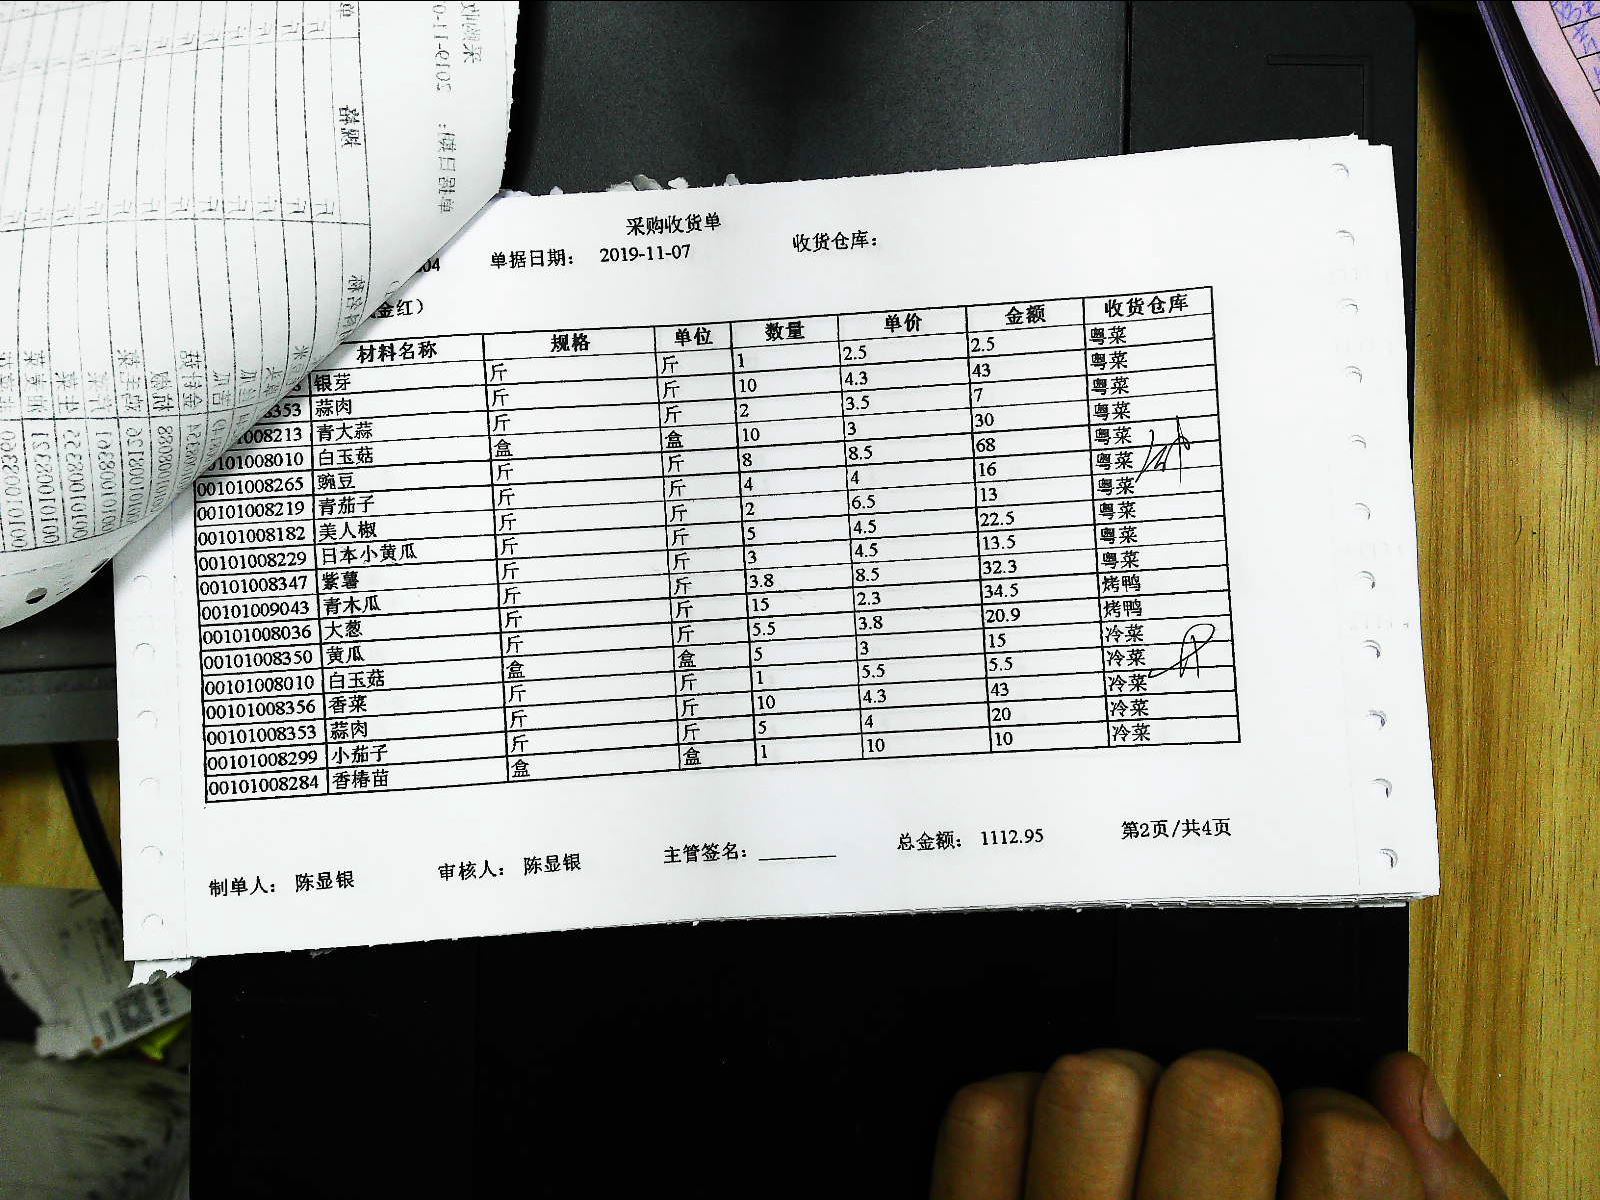 采购收货单
04 单据日期： 2019-11-07 收货仓库：
金红）
材料名称 规格 单位 数量 单价 金额 收货仓库
银芽 斤 斤 1 2.5 2.5 粤菜
8353 蒜肉 斤 斤 10 4.3 43 粤菜
101008213 青大蒜 斤 斤 2 3.5 7 粤菜
0101008010 白玉菇 盒 盒 10 3 30 粤菜
00101008265 豌豆 斤 斤 8 8.5 68 粤菜
00101008219 青茄子 斤 斤 4 4 16 粤菜
00101008182 美人椒 斤 斤 2 6.5 13 粤菜
00101008229 日本小黄瓜 斤 斤 5 4.5 22.5 粤菜
00101008347 紫薯 斤 斤 3 4.5 13.5 粤菜
00101009043 青木瓜 斤 斤 3.8 8.5 32.3 粤菜
00101008036 大葱 斤 斤 15 2.3 34.5 烤鸭
00101008350 黄瓜 斤 斤 5.5 3.8 20.9 烤鸭
00101008010 白玉菇 盒 盒 5 3 15 冷菜
00101008356 香菜 斤 斤 1 5.5 5.5 冷菜
00101008353 蒜肉 斤 斤 10 4.3 43 冷菜
00101008299 小茄子 斤 斤 5 4 20 冷菜
00101008284 香椿苗 盒 盒 1 10 10 冷菜
制单人： 陈显银 审核人： 陈显银 主管签名：________ 总金额： 1112.95 第2页/共4页